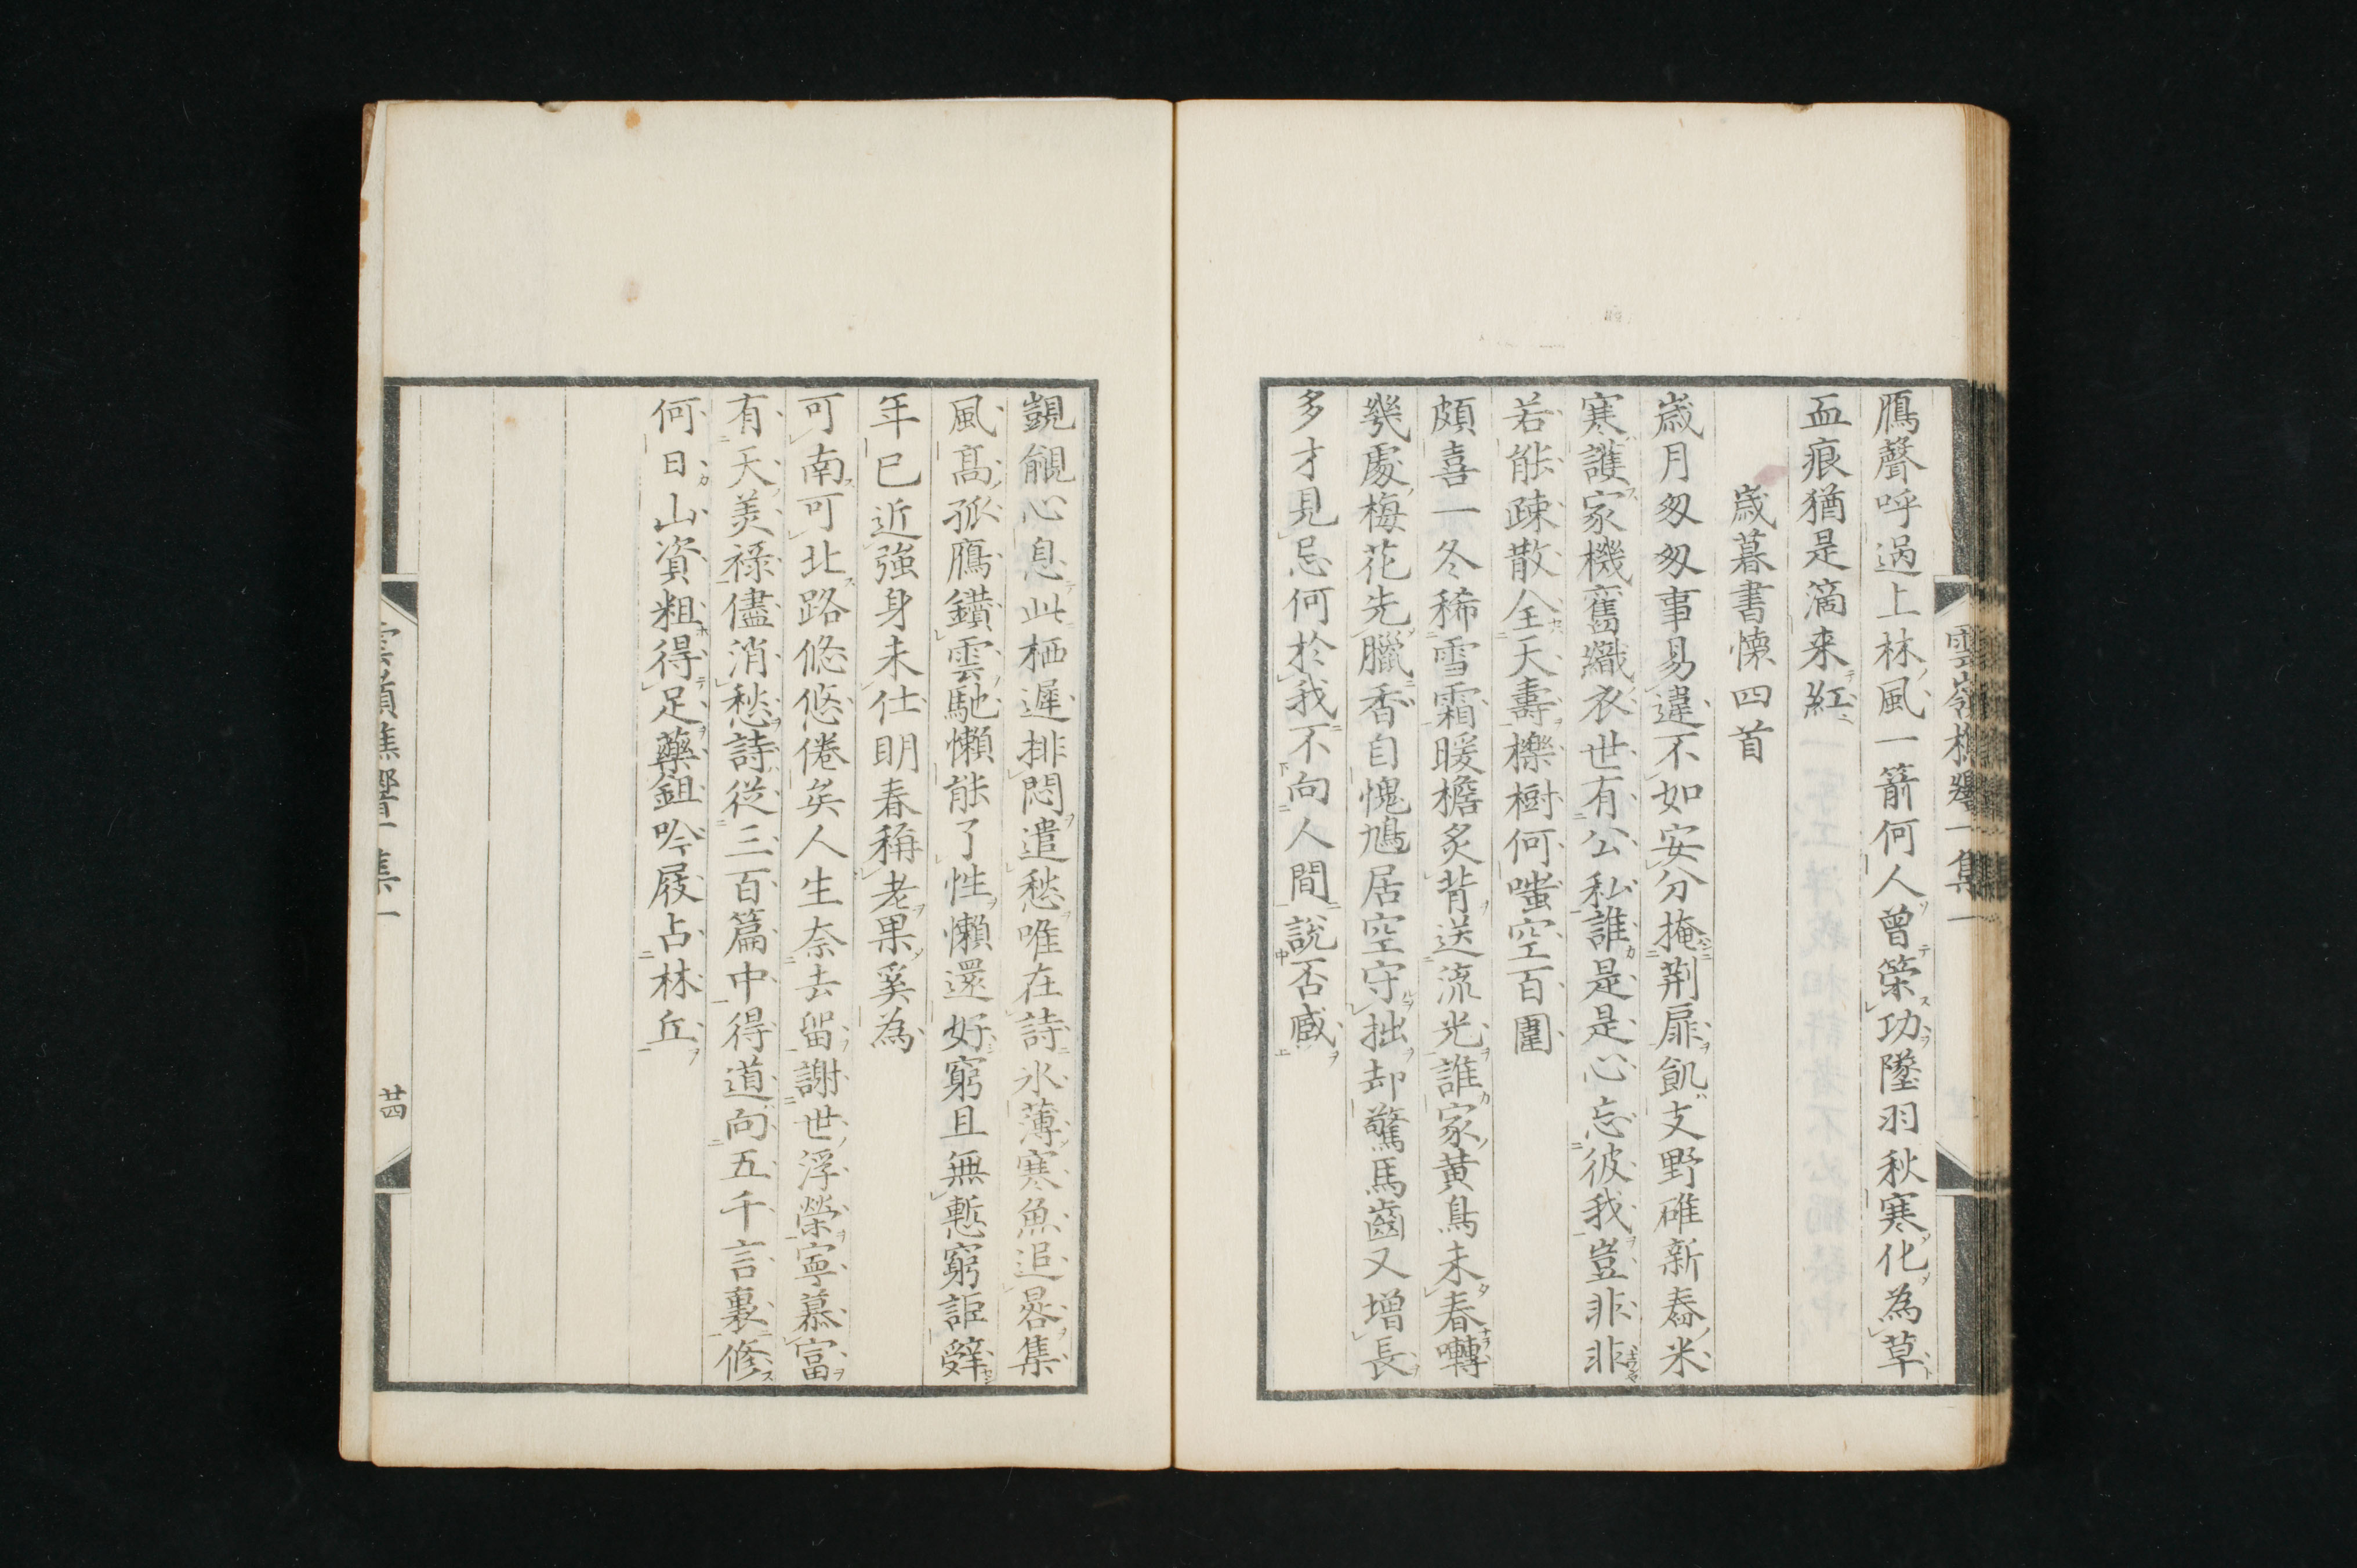 鴈聲呼過上林風一箭何人曾策功墜羽秋寒化為草
血痕猶是滴来紅
歳暮書懐四首
歳月匆匆事易違不如安分掩荆扉飢支野碓新舂米
寒護家機舊織衣世有公私誰是是心忘彼我豈非非
若能疎散全天壽櫟樹何嗤空百圍
頗喜一冬稀雪霜暖檐炙背送流光誰家黄鳥未春囀
幾處梅花先臘香自愧鳩居空守拙却驚馬齒又増長
多才見忌何於我不向人間説否臧
覬覦心息此栖遲排悶遣愁唯在詩氷薄寒魚追晷集
風髙孤鴈鑚雲馳懶能了性懶還好窮且無慙窮詎辭
年已近強身未仕明春稱老果奚為
可南可北路悠悠倦矣人生奈去留謝世浮榮寧慕富
有天美禄儘消愁詩從三百篇中得道向五千言裏修
何日山資粗得足藥鉏吟屐占林丘
廿四